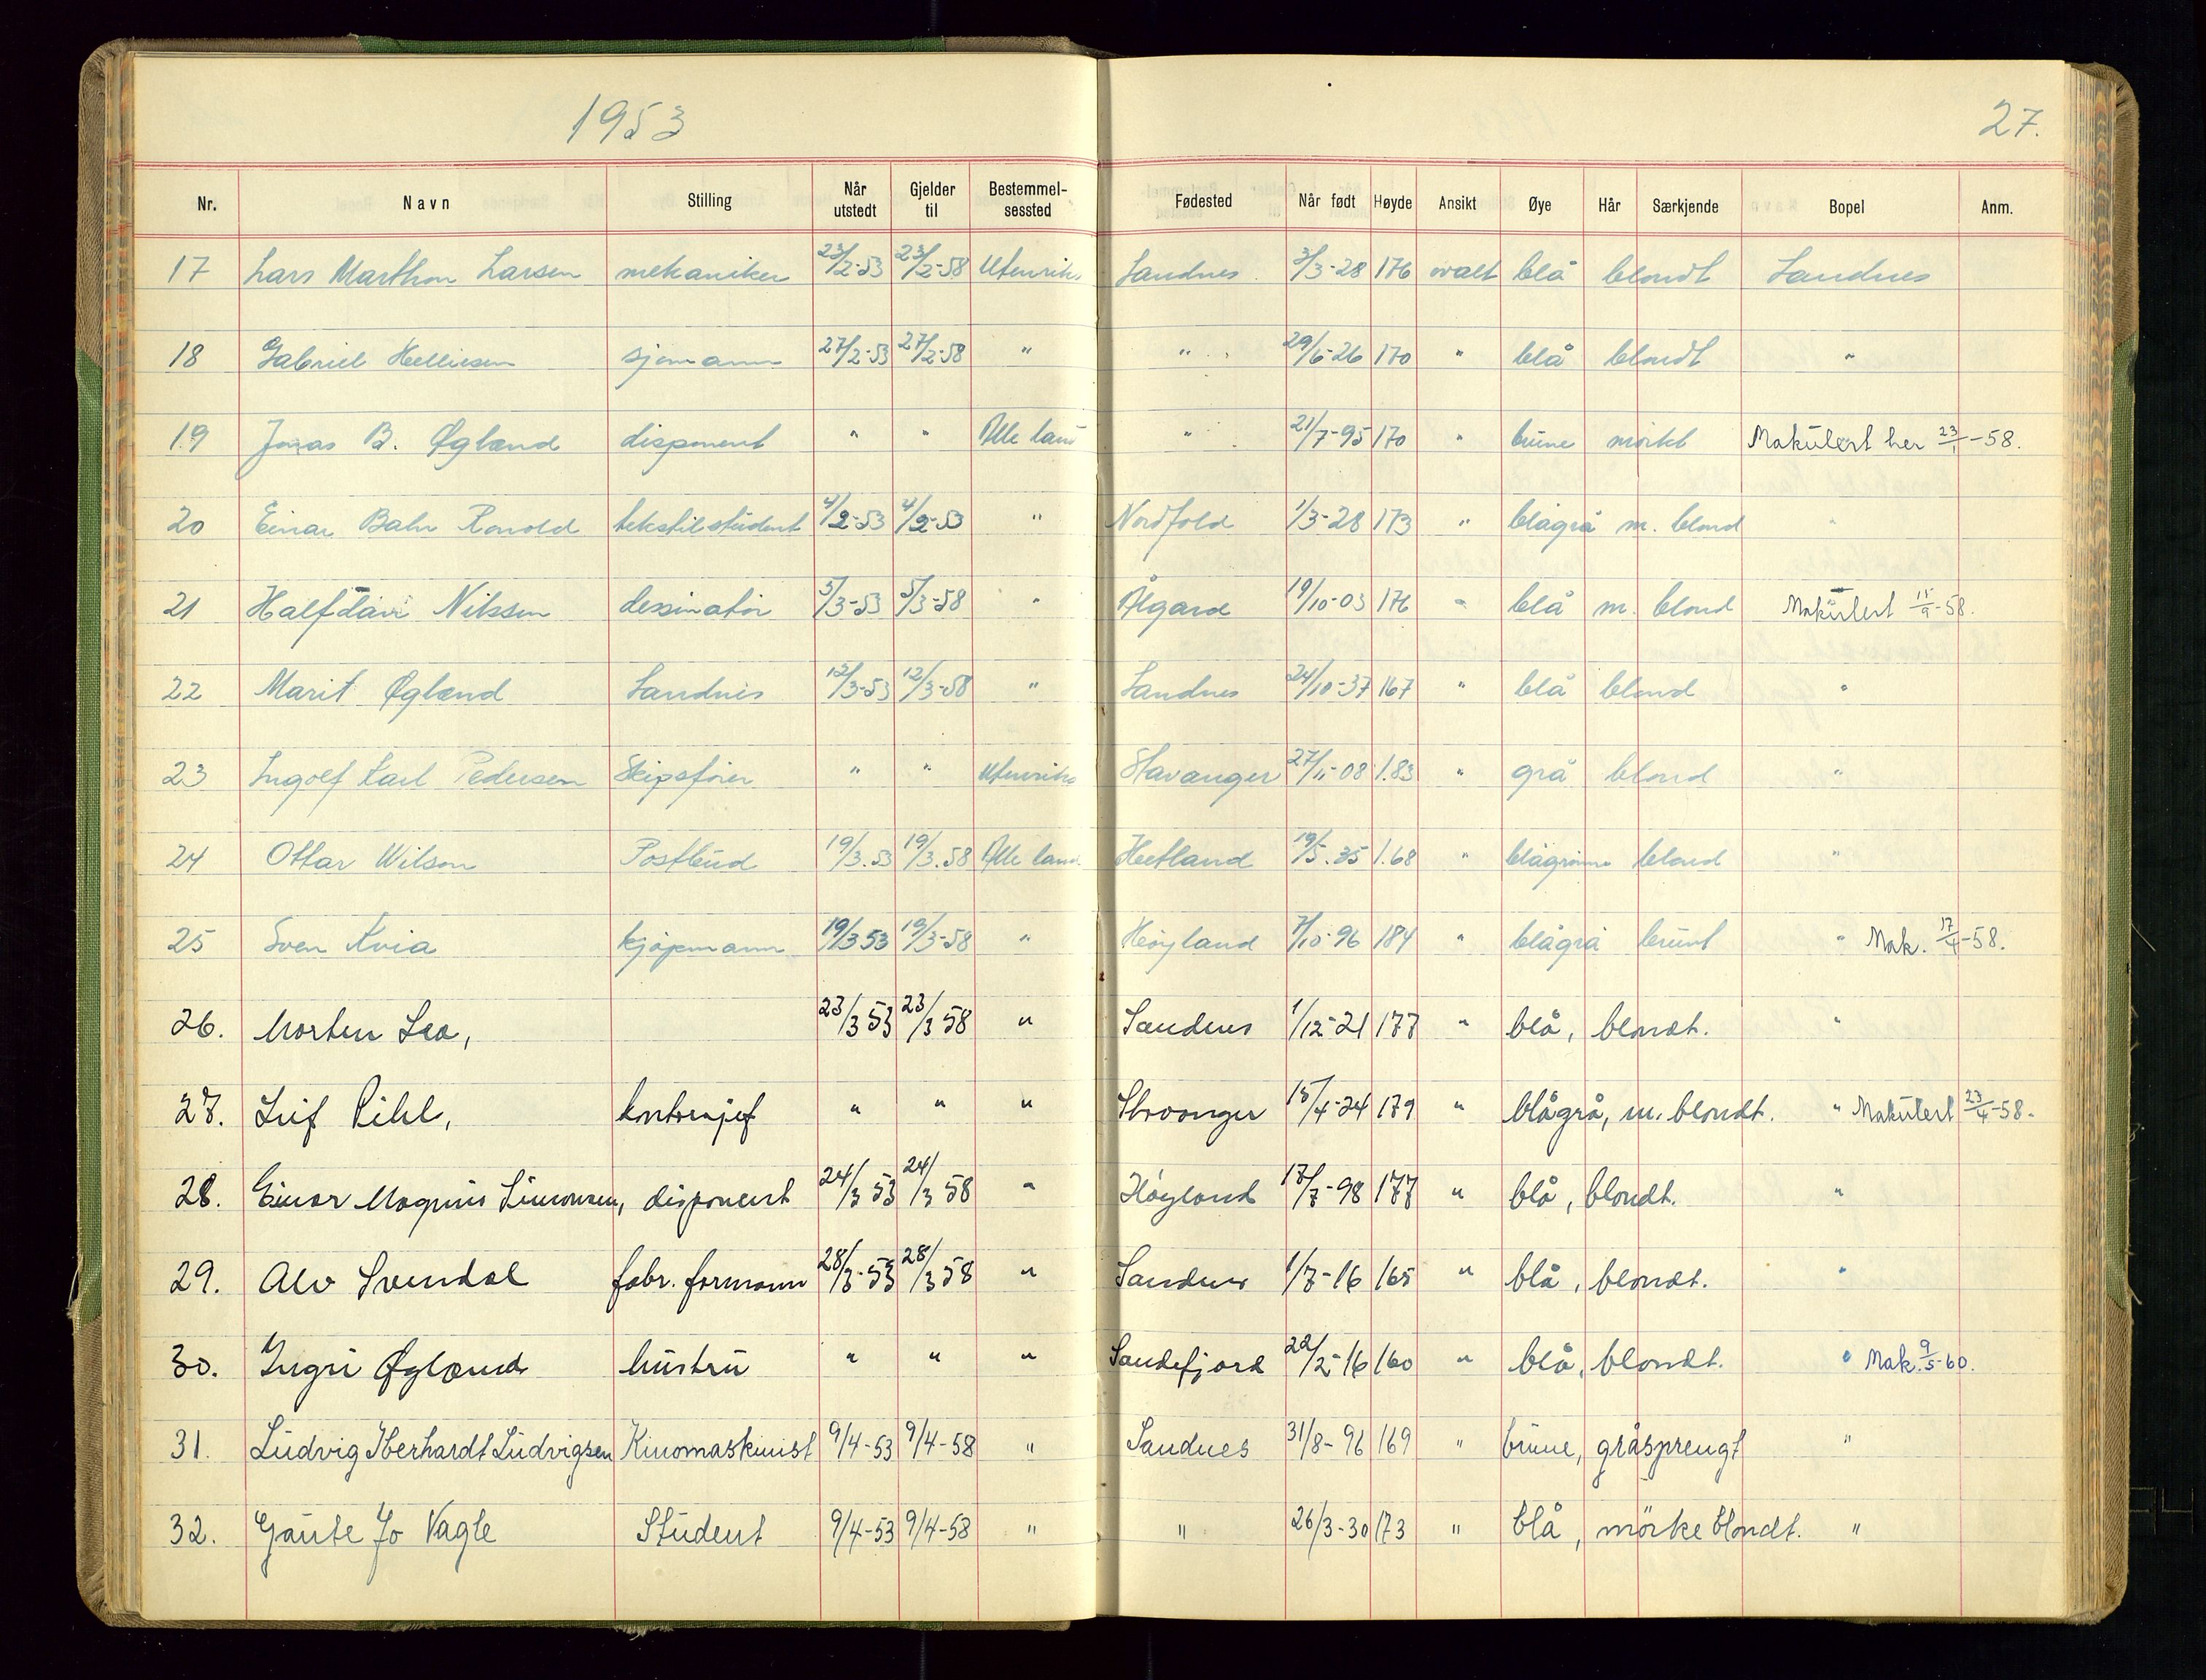 1953
27.
Nr. Navn Stilling Når utstedt Gjelder til Bestemmel-sessted Fødested Når født Høyde Ansikt Øye Hår Særkjende Bopel Anm.
17 Lars Marthon Larsen mekaniker 23/2-53 23/2-58 Utenriks Sandnes 3/3-28 176 ovalt blå blondt Sandnes
18 Gabriel Helliesen sjømann 27/2-53 27/2-58 " " 29/6-26 170 " blå blondt "
19 Jonas B. Øglænd disponent " " Alle land " 21/7-95 170 " brune mørkt Makulert her -58.
20 Einar Bahr Ronold tekstilstudent 4/2-53 4/2-53 " Nordfold 1/3-28 173 " blågrå m. blond "
21 Halfdan Nilssen dessinatør 5/3-53 5/3-58 " Ålgård 19/10-03 176 " blå m. blond Makulert 15/9-58.
22 Marit Øglænd Sandnes 12/3-53 12/3-58 " Sandnes 24/10-37 167 " blå blond "
23 Ingolf Karl Pedersen Skipsfører " " Utenriks Stavanger 27/11-08 1.83 " grå blond "
24 Ottar Wilson Postbud 19/3.53 19/3.58 Alle land Hetland 19/5.35 1.68 " blågrønne blond "
25 Sven Kvia kjøpmann 19/3 53 19/3-58 " Høyland 7/10-96 184 " blågrå brunt " Mak. 17/4-58.
26. Morten Lea, 23/3 53 23/3 58 " Sandnes 1/12-21 177 " blå, blondt. "
27. Leif Pihl, kontorsjef " " " Stavanger 15/4-24 179 " blågrå, m. blondt. " Makulert 23/4-58.
28. Einar Magnus Simonsen, disponent 24/3 53 24/3 58 " Høyland 17/7-98 177 " blå, blondt. "
29. Alv Svendal fabr. formann 28/3-53 28/3 58 " Sandnes 1/7-16 165 " blå, blondt. "
30. Ingri Øglænd hustru " " " Sandefjord 22/2-16 160 " blå, blondt. " Mak. 9/5-60.
31. Ludvig Iberhardt Ludvigsen Kinomaskinist 9/4-53 9/4-58 " Sandnes 31/8-96 169 " brune, gråsprengt "
32. Gaute Jo Vagle Student 9/4-53 9/4-58 " " 26/3-30 173 " blå, mörke blondt. "